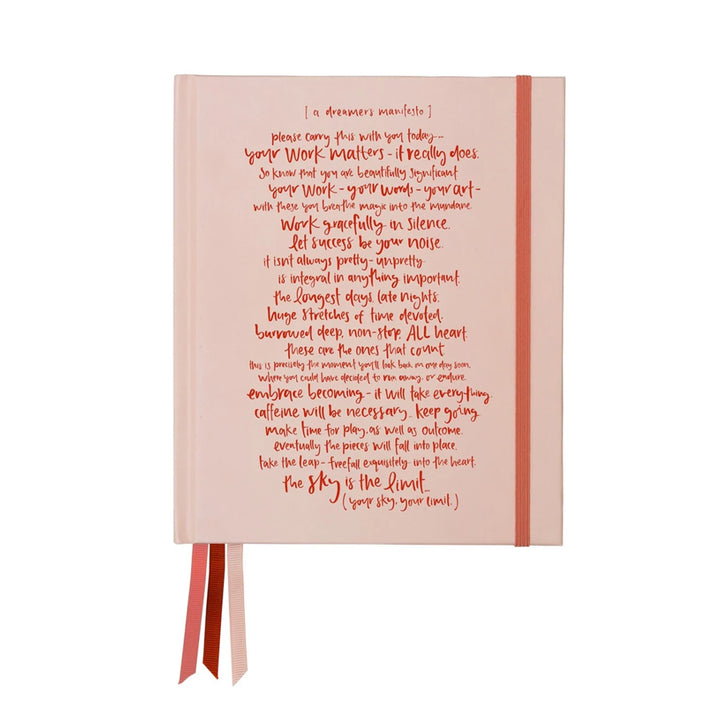 [ a dreamers manifesto ]
please carry this with you today...
your work matters - it really does.
So know that you are beautifully significant
your work - your words - your art -
with these you breathe magic into the mundane.
Work gracefully in silence.
let success be your noise.
it isnt always pretty - unpretty
is integral in anything important.
the longest days, late nights.
huge stretches of time devoted.
burrowed deep, non-stop, ALL heart.
these are the ones that count
this is precisely the moment you'll look back on one day soon,
where you could have decided to run away, or endure.
embrace becoming - it will take everything.
caffeine will be necessary.. keep going
make time for play, as well as outcome.
eventually the pieces will fall into place.
take the leap - freefall exquisitely into the heart.
the sky is the limit...
( your sky, your limit. )